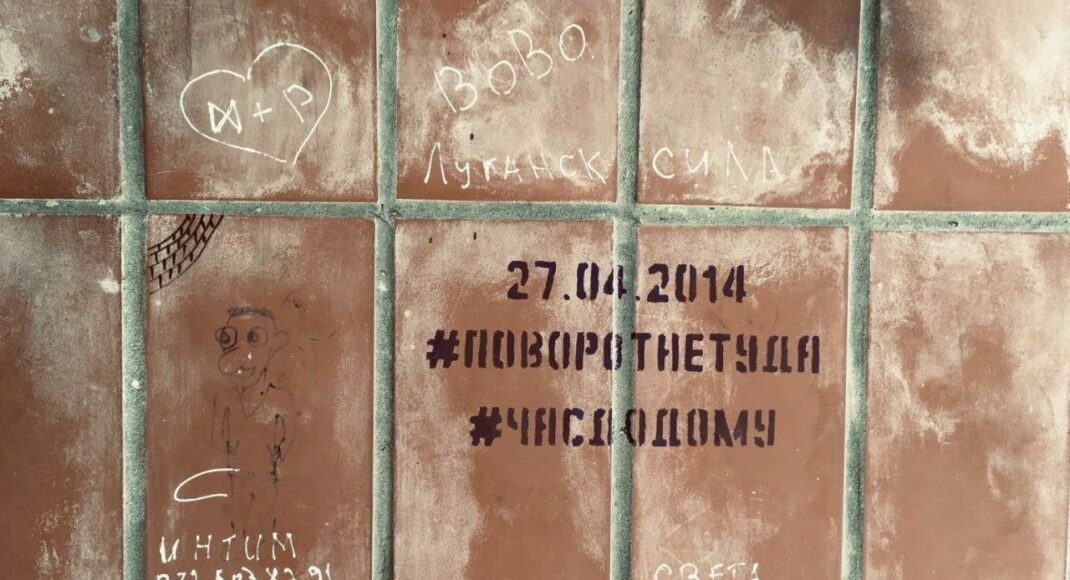 и + р
Вово
Луганск сила
27.04.2014
#ПОВОРОТНЕТУДА
#ЧАСДОДОМУ
ИНТИМ
СВЕТА